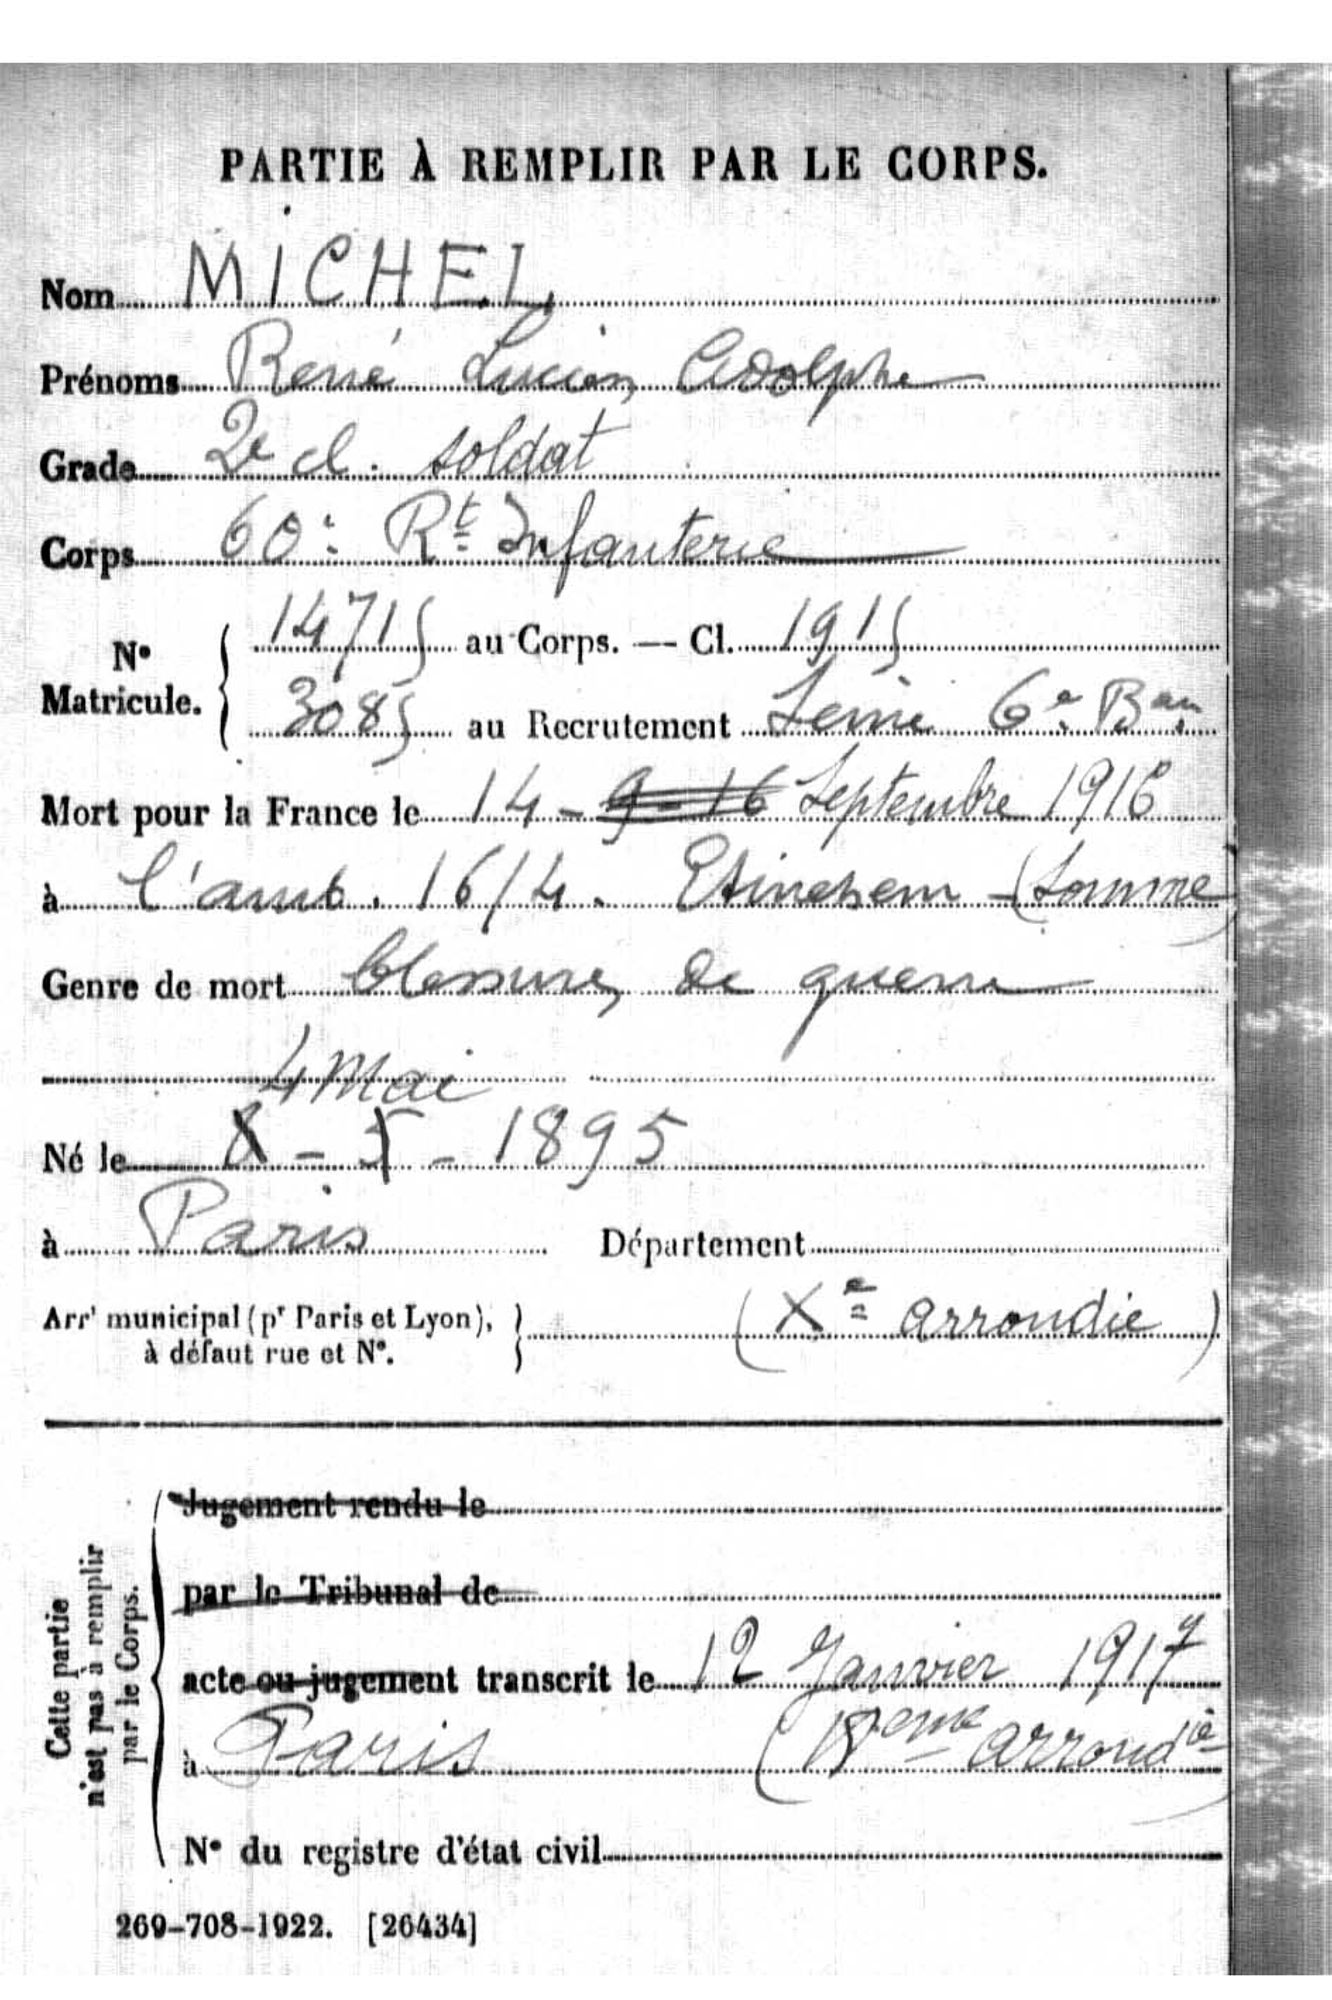 PARTIE À REMPLIR PAR LE CORPS.
Nom MICHEL
Prénoms René Lucien Adolphe
Grade 2e cl. soldat
Corps 60e Rt Infanterie
No Matricule. 14715 au Corps. — Cl. 1915
3085 au Recrutement Seine 6e Bau
Mort pour la France le 14 - 9 - 16 Septembre 1916
à l'amb. 16/4. Etinehem (Somme)
Genre de mort blessures de guerre
4 Mai
Né le 8 - 5 - 1895
à Paris Département
Arrt municipal (pr Paris et Lyon), à défaut rue et No. (Xe arrondie)
Cette partie n'est pas à remplir par le Corps.
Jugement rendu le
par le Tribunal de
acte ou jugement transcrit le 12 Janvier 1917
à Paris (18eme arrondie
No du registre d'état civil
269-708-1922. [26434]